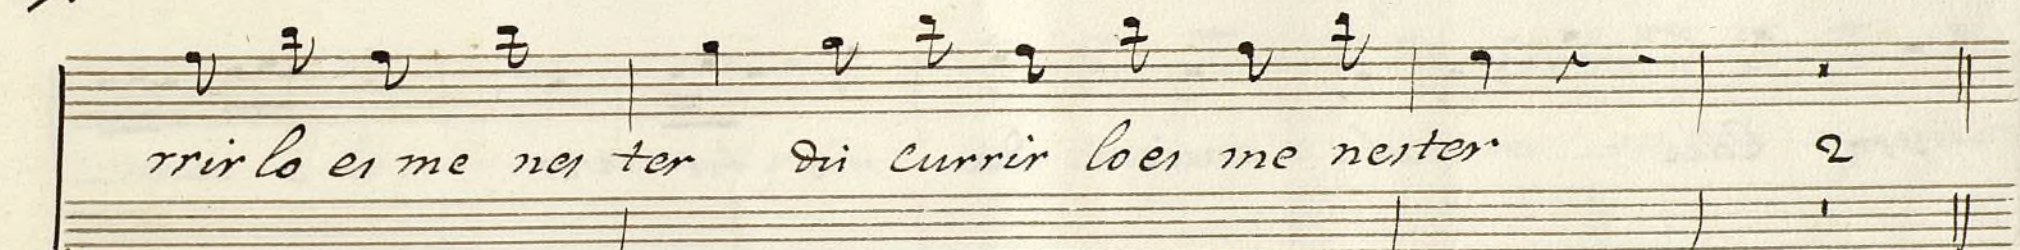 rrir lo es me nes ter dis currir loes me nester 2